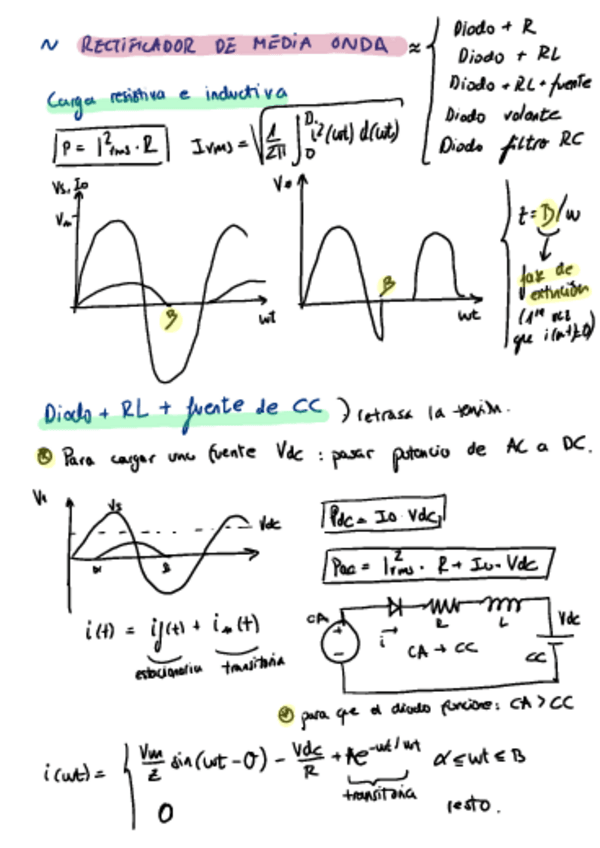 ~ RECTIFICADOR DE MEDIA ONDA ≈ {
Diodo + R
Diodo + RL
Diodo + RL + fuente
Diodo volante
Diodo filtro RC
Carga resistiva e inductiva
P = I²rms · R
Irms = √(1/2π ∫₀ᴮ i²(wt) d(wt))
Vs, Io
Vm
B
wt
Vo
B
wt
t = B/w
fase de
extinción
(1ª vez
que i(wt)=0)
Diodo + RL + fuente de CC ) retrasa la tensión.
Para cargar una fuente Vdc : pasar potencia de AC a DC.
Vs
Vdc
α
B
Pdc = Io · Vdc
Pac = I²rms · R + Io · Vdc
i(t) = if(t) + in(t)
estacionaria transitoria
CA
+
-
i
R
L
CA → CC
Vdc
CC
para que el diodo funcione: CA > CC
i(wt) = { Vm/Z sin(wt - θ) - Vdc/R + Ae^-wt/wτ α ≤ wt ≤ B
transitoria
0 resto.